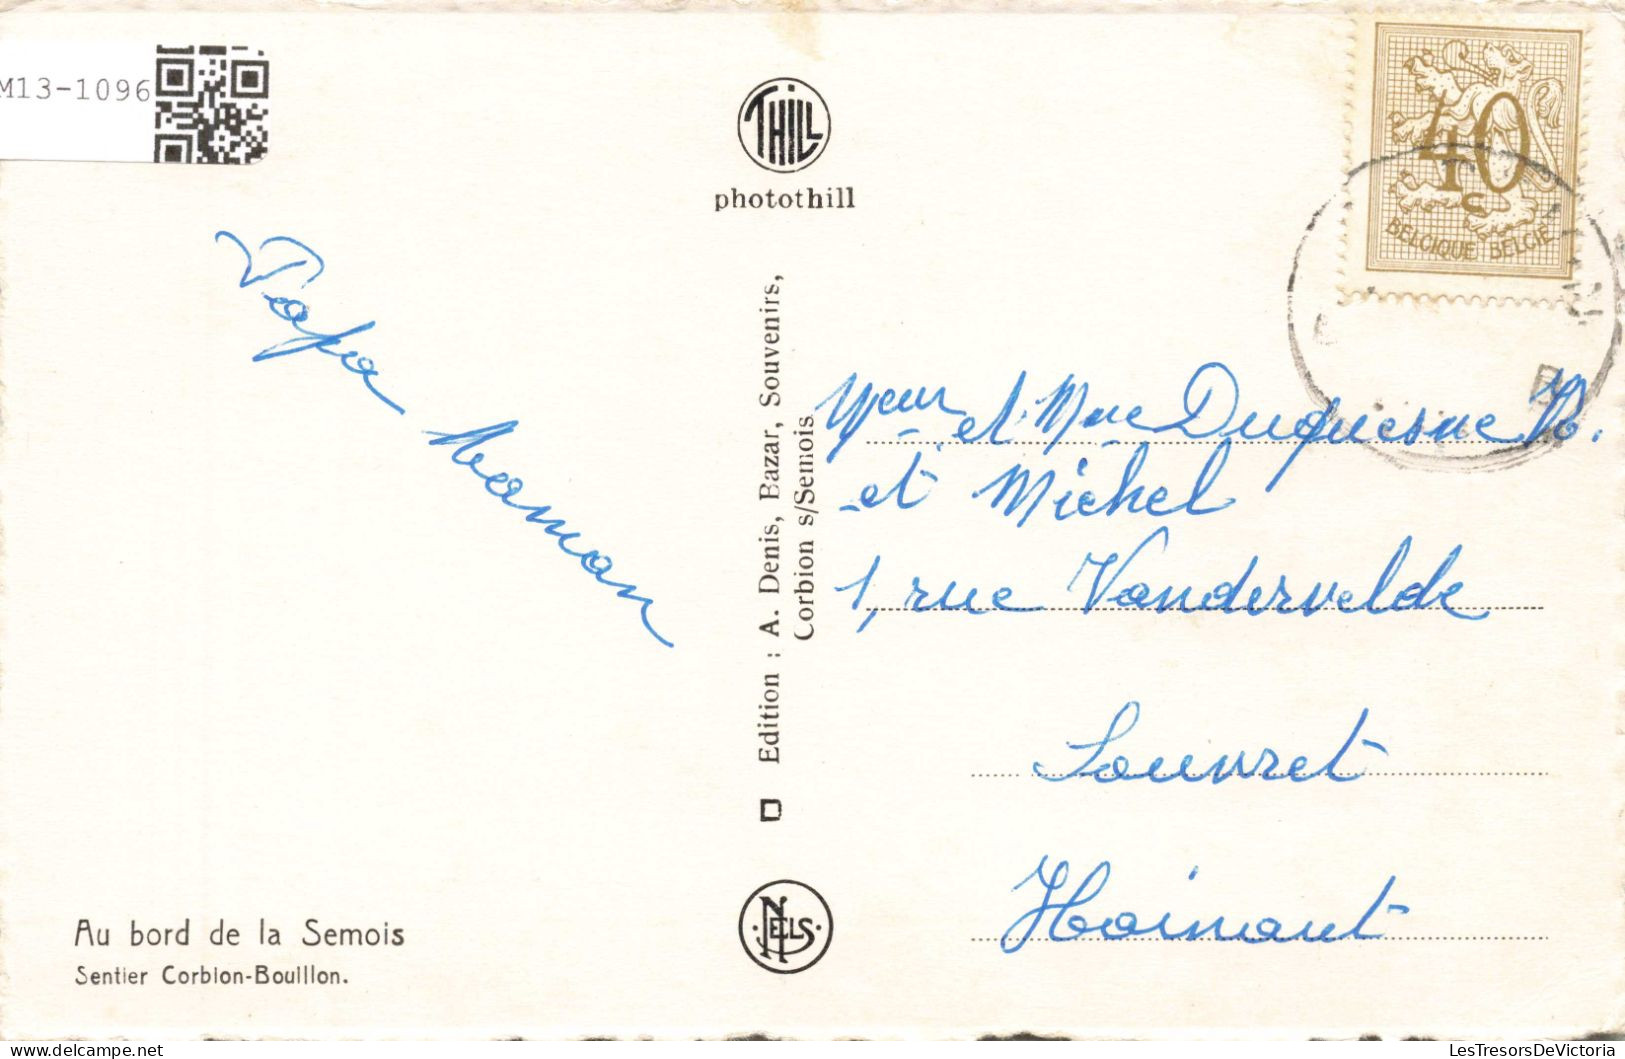 M13-1096
THILL
photothill
40
c
BELGIQUE BELGIË
Papa Maman
Edition : A. Denis, Bazar, Souvenirs,
Corbion s/Semois
et Mme Duquesne
et Michel
1, rue Vandervelde
Souvret
Hainaut
NELS
Au bord de la Semois
Sentier Corbion-Bouillon.
LesTresorsDeVictoria